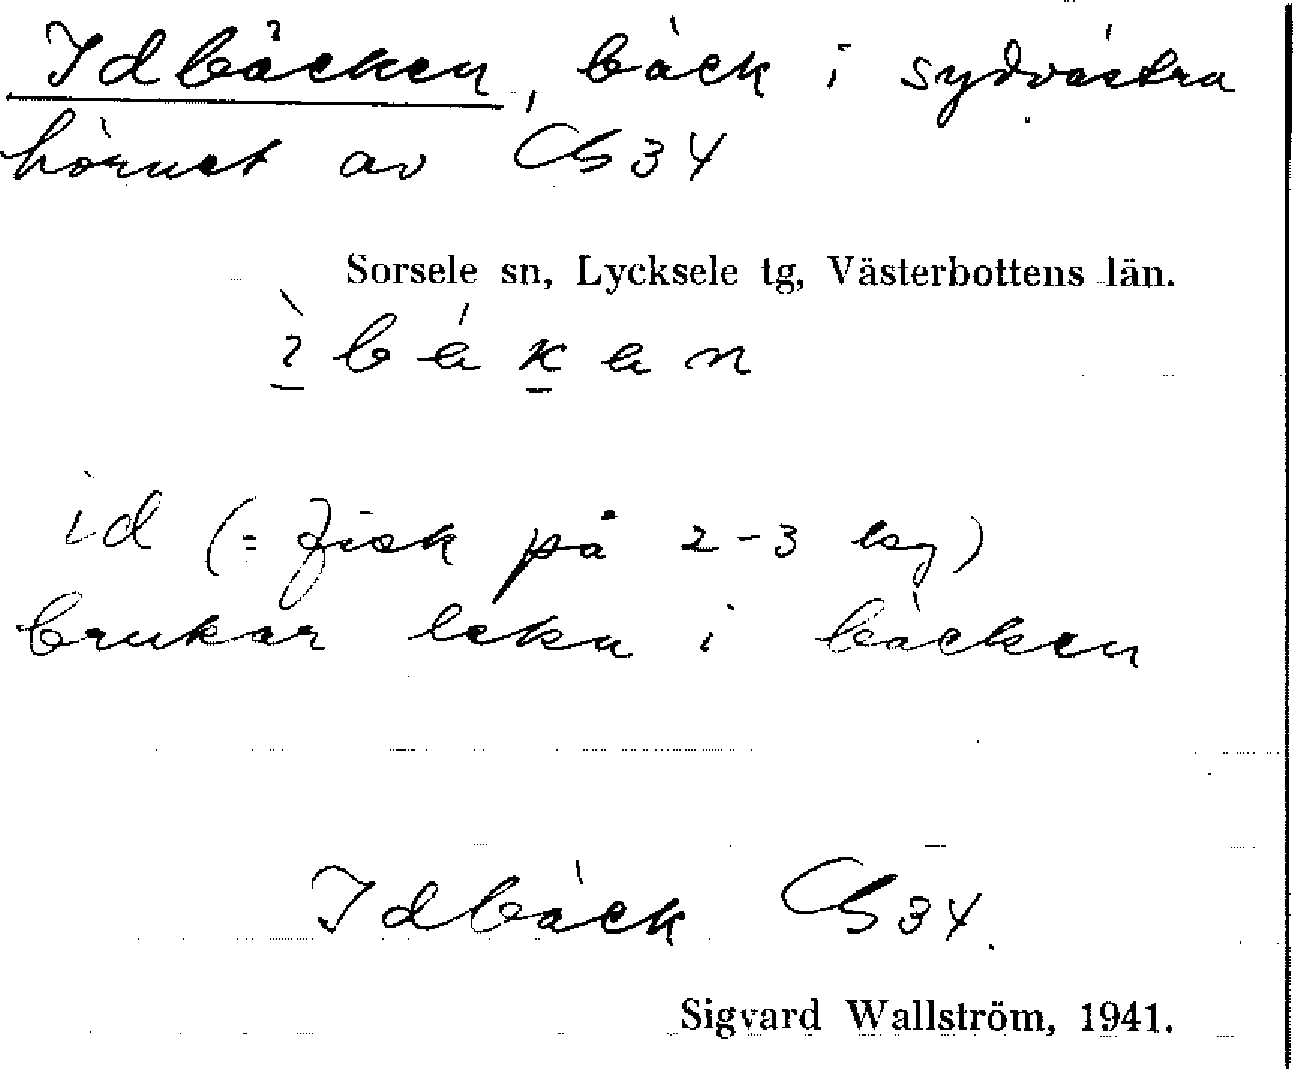 Idbäcken, bäck i sydvästra
hörnet av Cb 34
Sorsele sn, Lycksele tg, Västerbottens län.
ì b é k e n
id (= fisk på 2-3 kg)
brukar leka i bäcken
Idbäck Cb 34.
Sigvard Wallström, 1941.